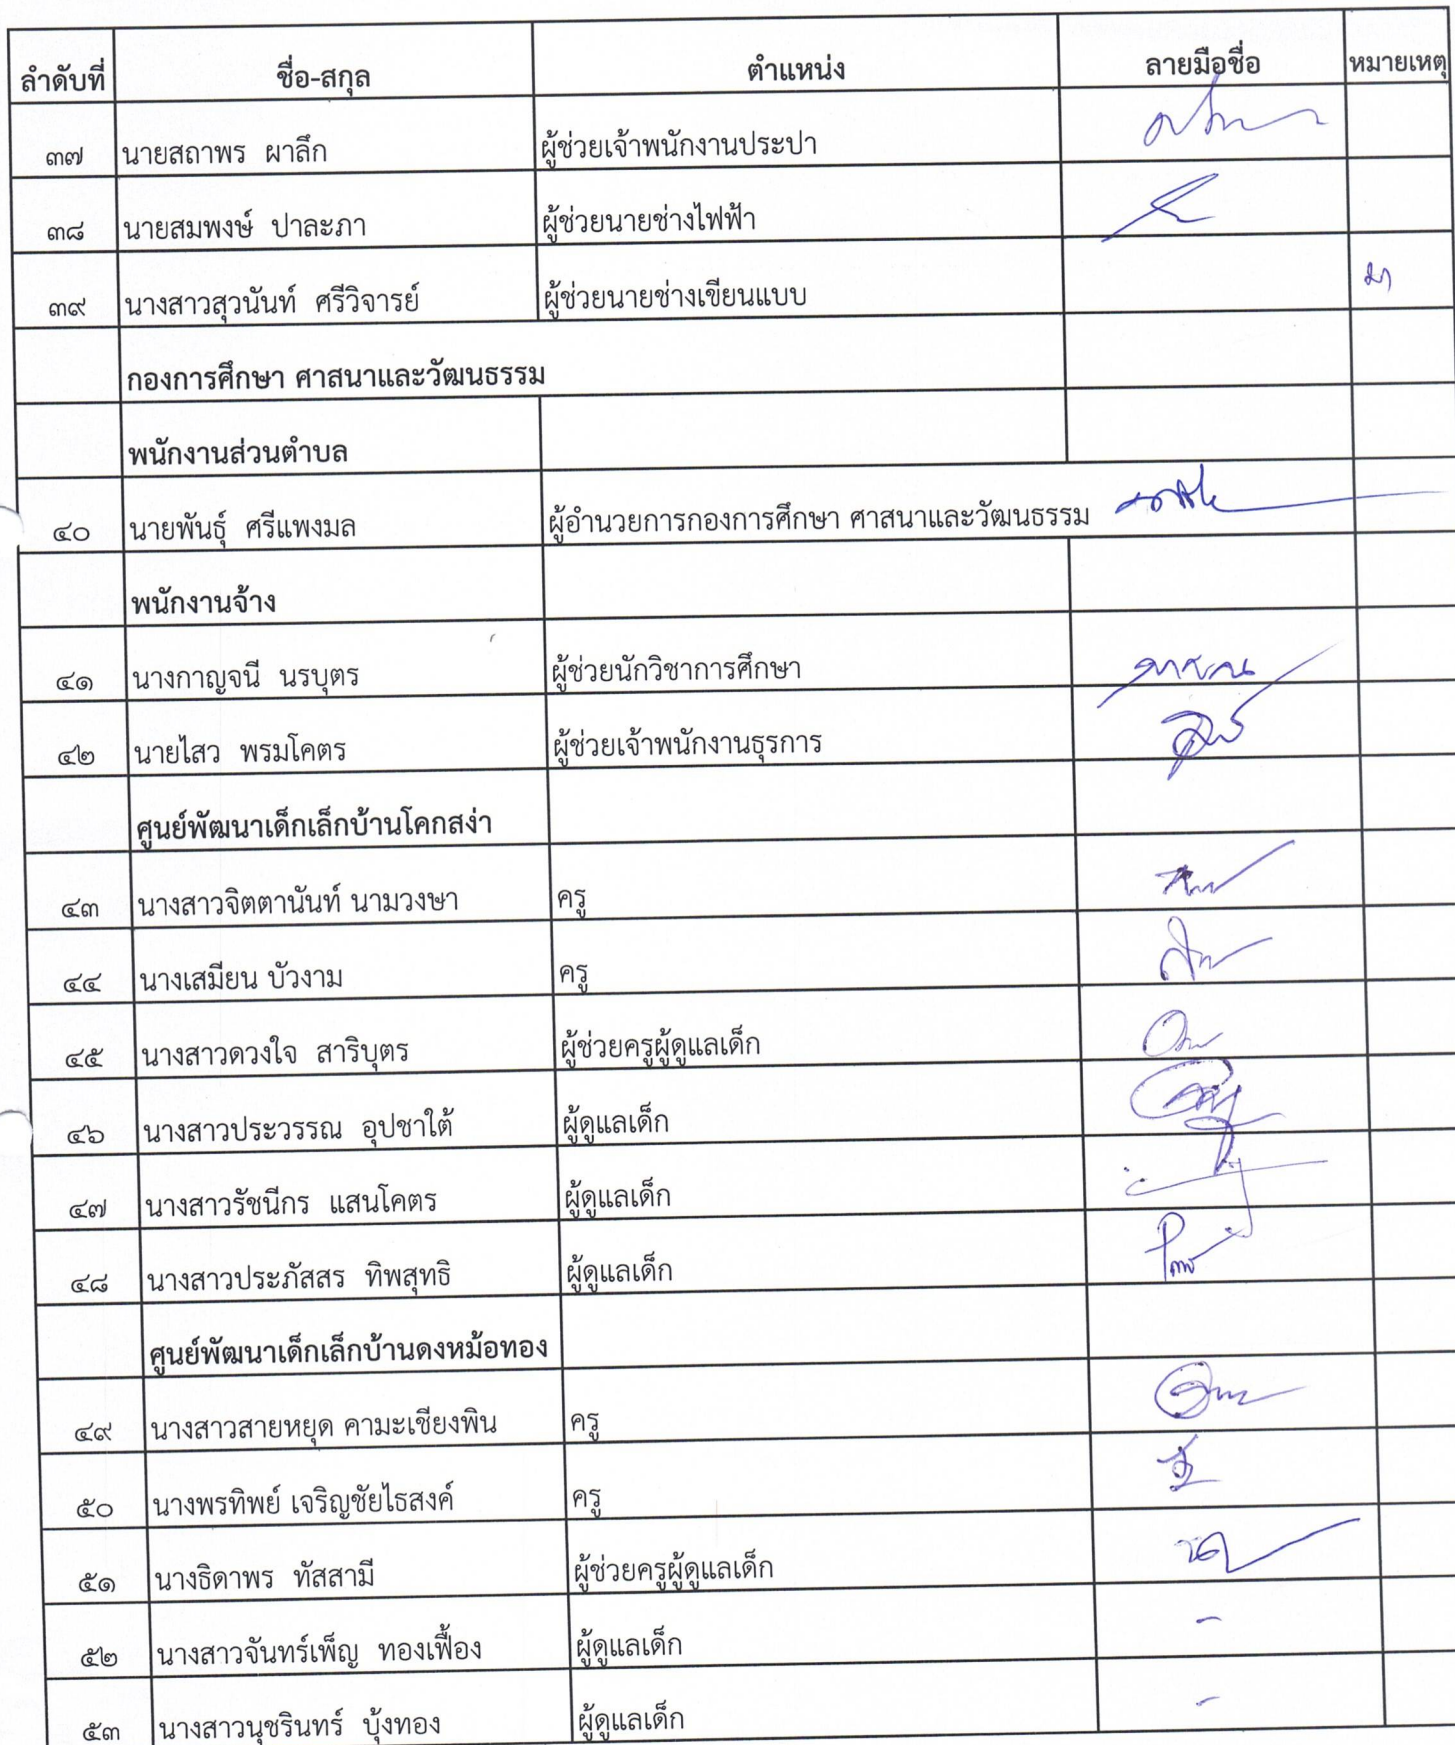 ลำดับที่ ชื่อ-สกุล ตำแหน่ง ลายมือชื่อ หมายเหตุ
๓๗ นายสถาพร ผาลึก ผู้ช่วยเจ้าพนักงานประปา
๓๘ นายสมพงษ์ ปาละภา ผู้ช่วยนายช่างไฟฟ้า
๓๙ นางสาวสุวนันท์ ศรีวิจารย์ ผู้ช่วยนายช่างเขียนแบบ
กองการศึกษา ศาสนาและวัฒนธรรม
พนักงานส่วนตำบล
๔๐ นายพันธุ์ ศรีแพงมล ผู้อำนวยการกองการศึกษา ศาสนาและวัฒนธรรม
พนักงานจ้าง
๔๑ นางกาญจนี นรบุตร ผู้ช่วยนักวิชาการศึกษา
๔๒ นายไสว พรมโคตร ผู้ช่วยเจ้าพนักงานธุรการ
ศูนย์พัฒนาเด็กเล็กบ้านโคกสง่า
๔๓ นางสาวจิตตานันท์ นามวงษา ครู
๔๔ นางเสมียน บัวงาม ครู
๔๕ นางสาวดวงใจ สาริบุตร ผู้ช่วยครูผู้ดูแลเด็ก
๔๖ นางสาวประวรรณ อุปชาใต้ ผู้ดูแลเด็ก
๔๗ นางสาวรัชนีกร แสนโคตร ผู้ดูแลเด็ก
๔๘ นางสาวประภัสสร ทิพสุทธิ ผู้ดูแลเด็ก
ศูนย์พัฒนาเด็กเล็กบ้านดงหม้อทอง
๔๙ นางสาวสายหยุด คามะเชียงพิน ครู
๕๐ นางพรทิพย์ เจริญชัยไธสงค์ ครู
๕๑ นางธิดาพร ทัสสามี ผู้ช่วยครูผู้ดูแลเด็ก
๕๒ นางสาวจันทร์เพ็ญ ทองเฟื้อง ผู้ดูแลเด็ก -
๕๓ นางสาวนุชรินทร์ บุ้งทอง ผู้ดูแลเด็ก -